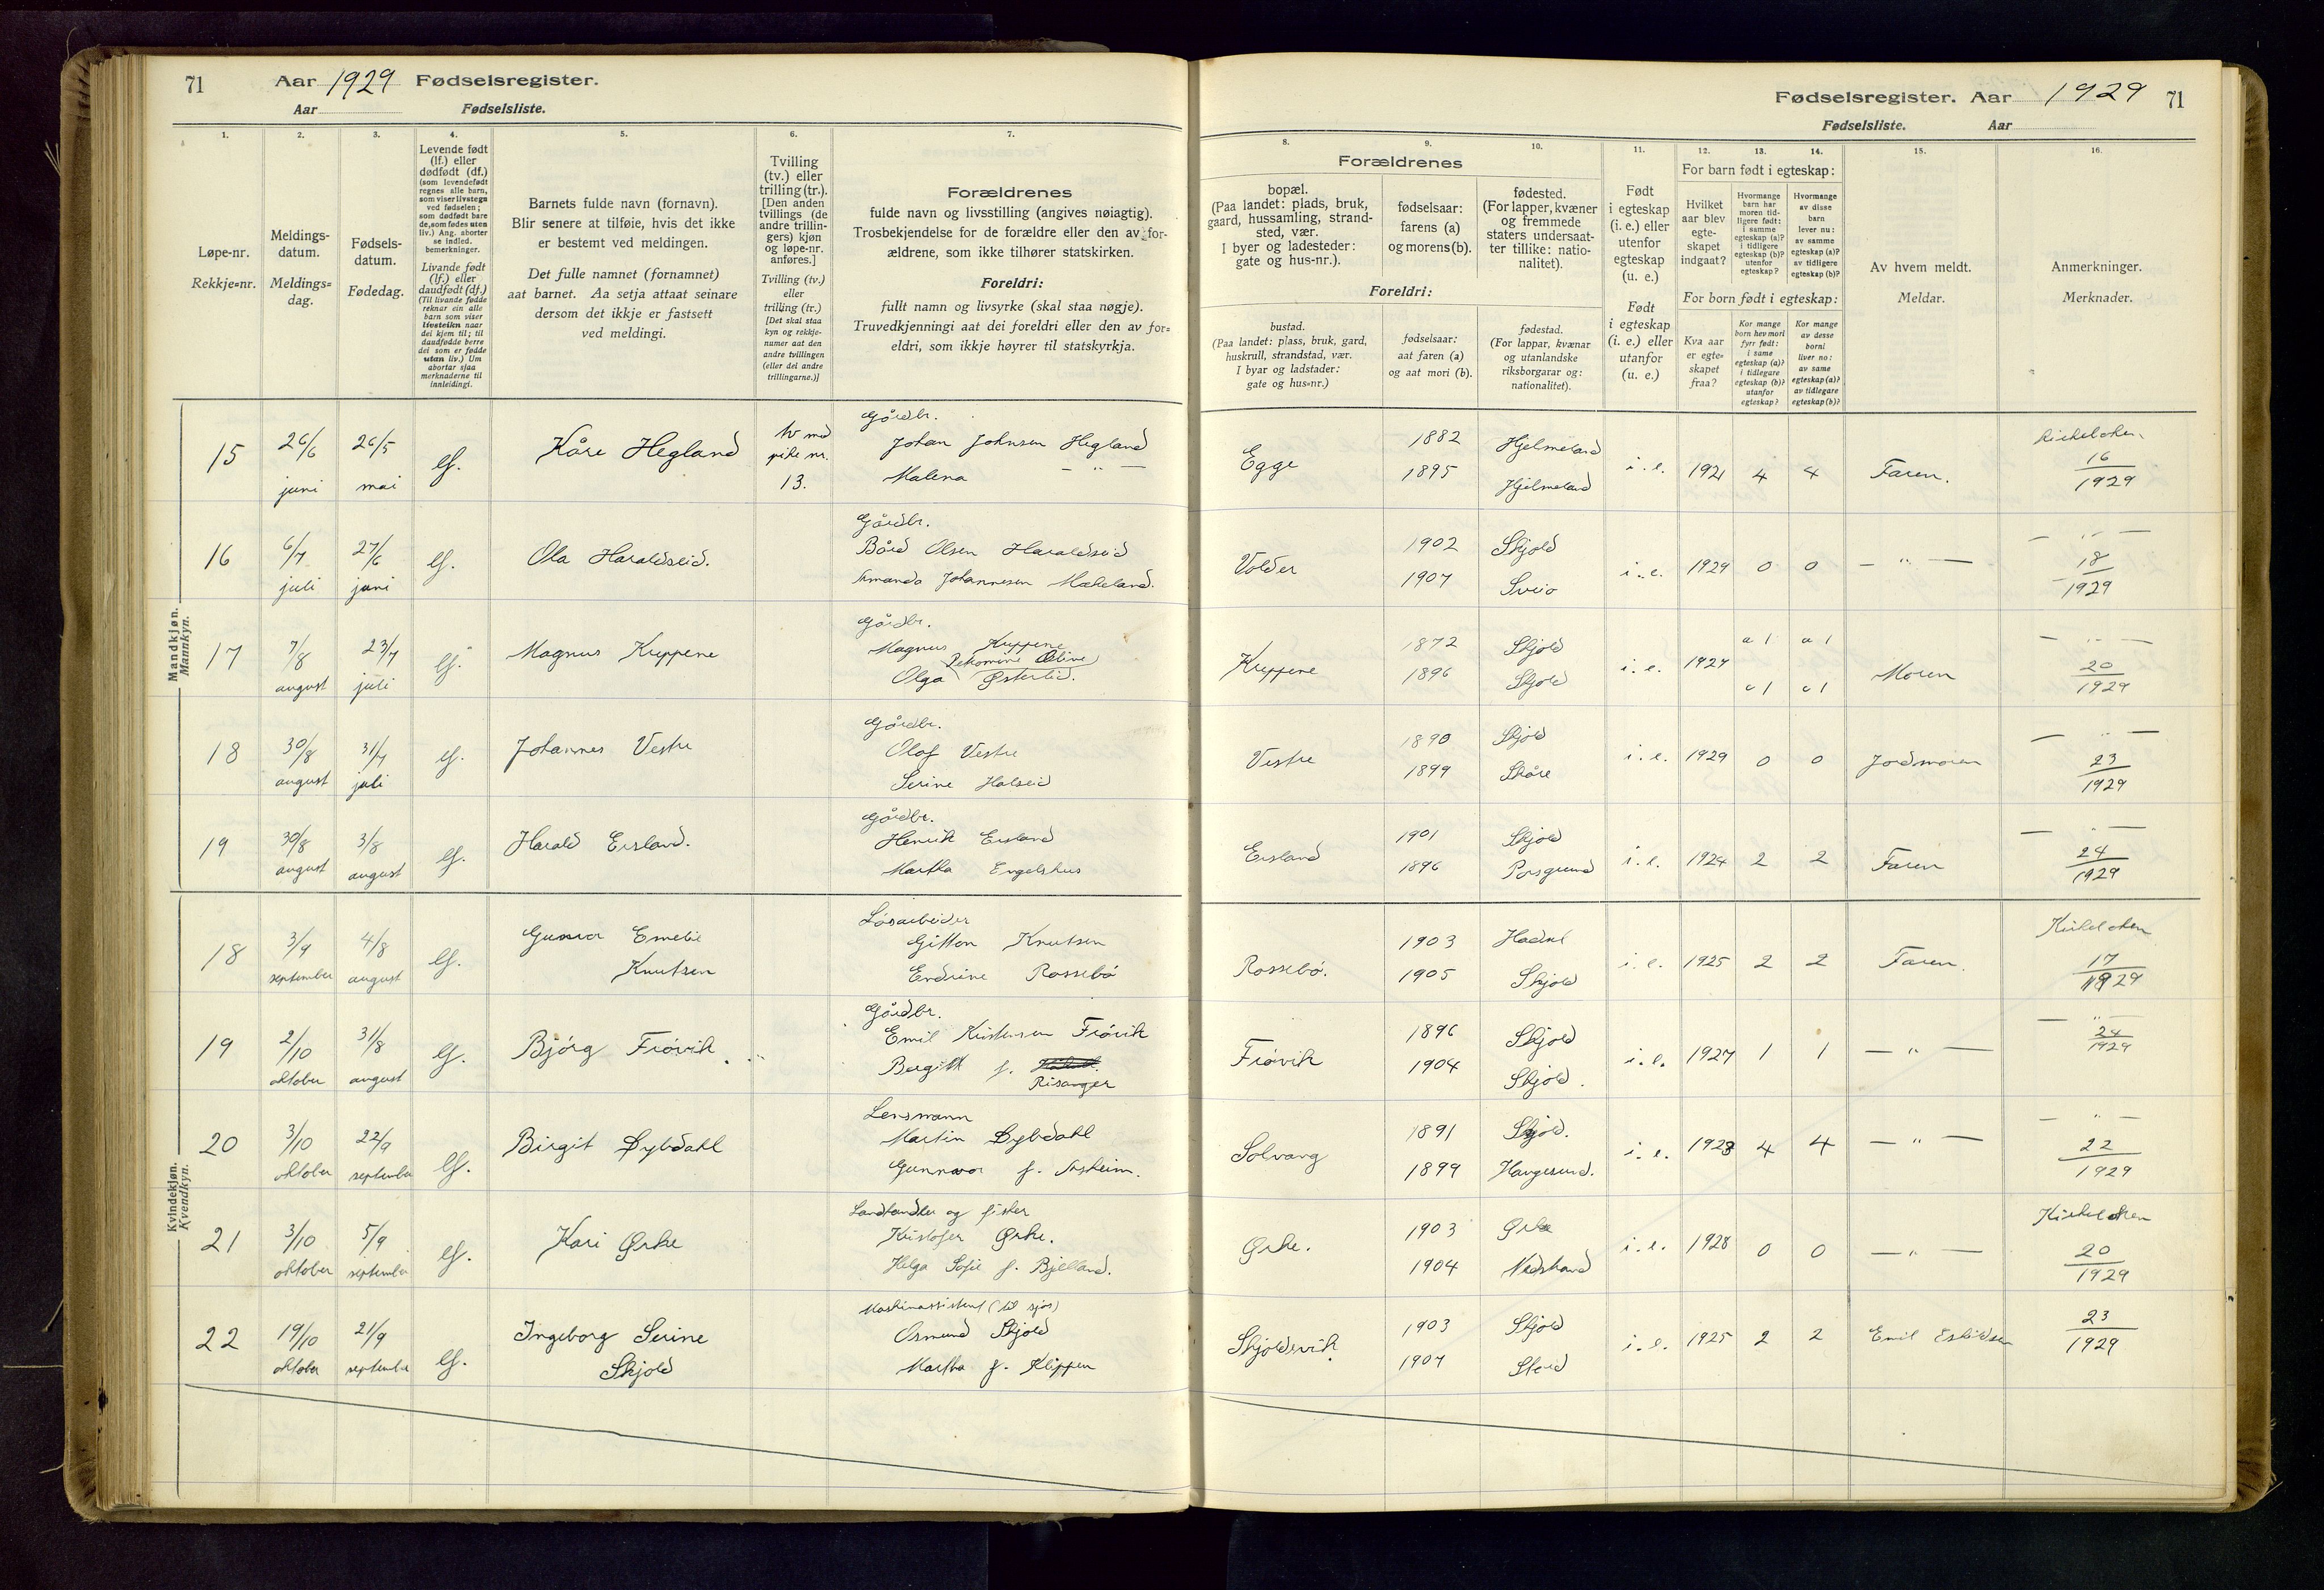 71
Aar 1929 Fødselsregister.
Aar Fødselsliste.
1.
2.
3.
4.
5.
6.
7.
Løpe-nr.
Rekkje=nr.
Meldings-
datum.
Meldings=
dag.
Fødsels-
datum.
Fødedag.
Levende født
(lf.) eller
dødfødt (df.)
(som levendefødt
regnes alle barn,
som viser livstegn
ved fødselen;
som dødfødt bare
de, som fødes uten
liv.) Ang. aborter
se indled.
bemerkninger.
Livande født
(lf.) eller
daudfødt (df.)
(Til livande fødde
reknar ein alle
barn som viser
livsteikn naar
dei kjem til; til
daudfødde berre
dei som er fødde
utan liv.) Um
abortar sjaa
merknaderne til
innleidingi.
Barnets fulde navn (fornavn).
Blir senere at tilføie, hvis det ikke
er bestemt ved meldingen.
Det fulle namnet (fornamnet)
aat barnet. Aa setja attaat seinare
dersom det ikkje er fastsett
ved meldingi.
Tvilling
(tv.) eller
trilling (tr.).
[Den anden
tvillings (de
andre trillin-
gers) kjøn
og løpe-nr.
anføres.]
Tvilling (tv.)
eller
trilling (tr.)
[Det skal staa
kyn og rekkje-
numer aat den
andre tvillingen
(eller dei andre
trillingarne.)]
Forældrenes
fulde navn og livsstilling (angives nøiagtig).
Trosbekjendelse for de forældre eller den av for-
ældrene, som ikke tilhører statskirken.
Foreldri:
fullt namn og livsyrke (skal staa nøgje).
Truvedkjenningi aat dei foreldri eller den av for=
eldri, som ikkje høyrer til statskyrkja.
Mandkjøn.
Mannkyn.
15 26/6 juni 26/5 mai lf. Kåre Hegland tv med pike nr. 13.
Gårdbr.
Johan Johnsen Hegland
Malena — " —
16 6/7 juli 27/6 juni lf. Ola Haraldseid.
Gårdbr.
Bård Olsen Haraldseid
Amanda Johannesen Mækeland.
17 7/8 august 23/7 juli lf. Magnus Kreppene
Gårdbr.
Magnus Kreppene
Olga Østerlid.
18 30/8 august 31/7 juli lf. Johannes Vestre
Gårdbr.
Olaf Vestre
Serine Halseid
19 30/8 august 3/8 august lf. Harald Eisland.
Gårdbr.
Henrik Eisland
Martha Engelshus
Kvindekjøn.
Kvendkyn.
18 3/9 september 4/8 august lf. Gunvor Emelie
Knutsen
Løsarbeider
Gitton Knutsen
Endrine Rossebø
19 2/10 oktober 31/8 august lf. Bjørg Frøvik.
Gårdbr.
Emil Kristensen Frøvik
Bergitt f.
Risanger
20 3/10 oktober 22/9 september lf. Birgit Dybdahl
Lensmann
Martin Dybdahl
Gunnvor f. Årsheim.
21 3/10 oktober 5/9 september lf. Kari Ørke
Landhandler og fisker
Kristofer Ørke.
Helga Sofie f. Bjelland.
22 19/10 oktober 21/9 september lf. Ingeborg Serine
Skjold
Maskinassistent (til sjøs)
Osmund Skjold
Martha f. Klippen
Fødselsregister. Aar 1929 71
Fødselsliste. Aar
8.
9.
10.
11.
12.
13.
14.
15.
16.
Forældrenes
bopæl.
(Paa landet: plads, bruk,
gaard, hussamling, strand-
sted, vær.
I byer og ladesteder:
gate og hus-nr.).
fødselsaar:
farens (a)
og morens (b).
fødested.
(For lapper, kvæner
og fremmede
staters undersaat-
ter tillike: natio-
nalitet).
Foreldri:
bustad.
(Paa landet: plass, bruk, gard,
huskrull, strandstad, vær.
I byar og ladstader:
gate og hus=nr.)
fødselsaar:
aat faren (a)
og aat mori (b).
fødestad.
(For lappar, kvænar
og utanlandske
riksborgarar og:
nationalitet).
Født
i egteskap
(i. e.) eller
utenfor
egteskap
(u. e.)
Født
i egteskap
(i. e.) eller
utanfor
(u. e.)
For barn født i egteskap:
Hvilket
aar blev
egte-
skapet
indgaat?
Hvormange
barn har
moren tid-
ligere født:
i samme
egteskap (a)?
i tidligere
egteskap (b)?
utenfor
egteskap?
Hvormange
av disse
barn
lever nu:
av samme
egteskap (a)?
av tidligere
egteskap (b)?
For born født i egteskap:
Kva aar
er egte=
skapet
fraa?
Kor mange
born hev mori
fyrr født:
i same
egteskap (a)?
i tidlegare
egteskap (b)?
utanfor
egteskap?
Kor mange
av desse
borni
liver no:
av same
egteskap (a)?
av tidlegare
egteskap (b)?
Av hvem meldt.
Meldar.
Anmerkninger.
Merknader.
Egge 1882 Hjelmeland 1895 Hjelmeland i. e. 1921 4 4 Faren. Kirkeboken 16/1929
Volder 1902 Skjold 1907 Sveio i. e. 1929 0 0 — " — — " — 18/1929
Kreppene 1872 Skjold 1896 Skjold i. e. 1927 a 1 a 1 Moren — " — 20/1929
Vestre 1890 Skjold 1899 Skåre i. e. 1929 0 0 Jordmoren — " — 23/1929
Eisland 1901 Skjold 1896 Porsgrund i. e. 1924 2 2 Faren — " — 24/1929
Rossebø. 1903 1905 Skjold i. e. 1925 2 2 Faren. Kirkeboken 17/1929
Frøvik 1896 Skjold 1904 Skjold. i. e. 1927 1 1 — " — — " — 24/1929
Solvang 1891 Skjold. 1899 Haugesund. i. e. 1923 4 4 — " — — " — 22/1929
Ørke. 1903 Ørke 1904 Nedstrand i. e. 1928 0 0 — " — Kirkeboken 20/1929
Skjoldsvik 1903 Skjold 1907 Stord i. e. 1925 2 2 Emil Eskildsen 23/1929